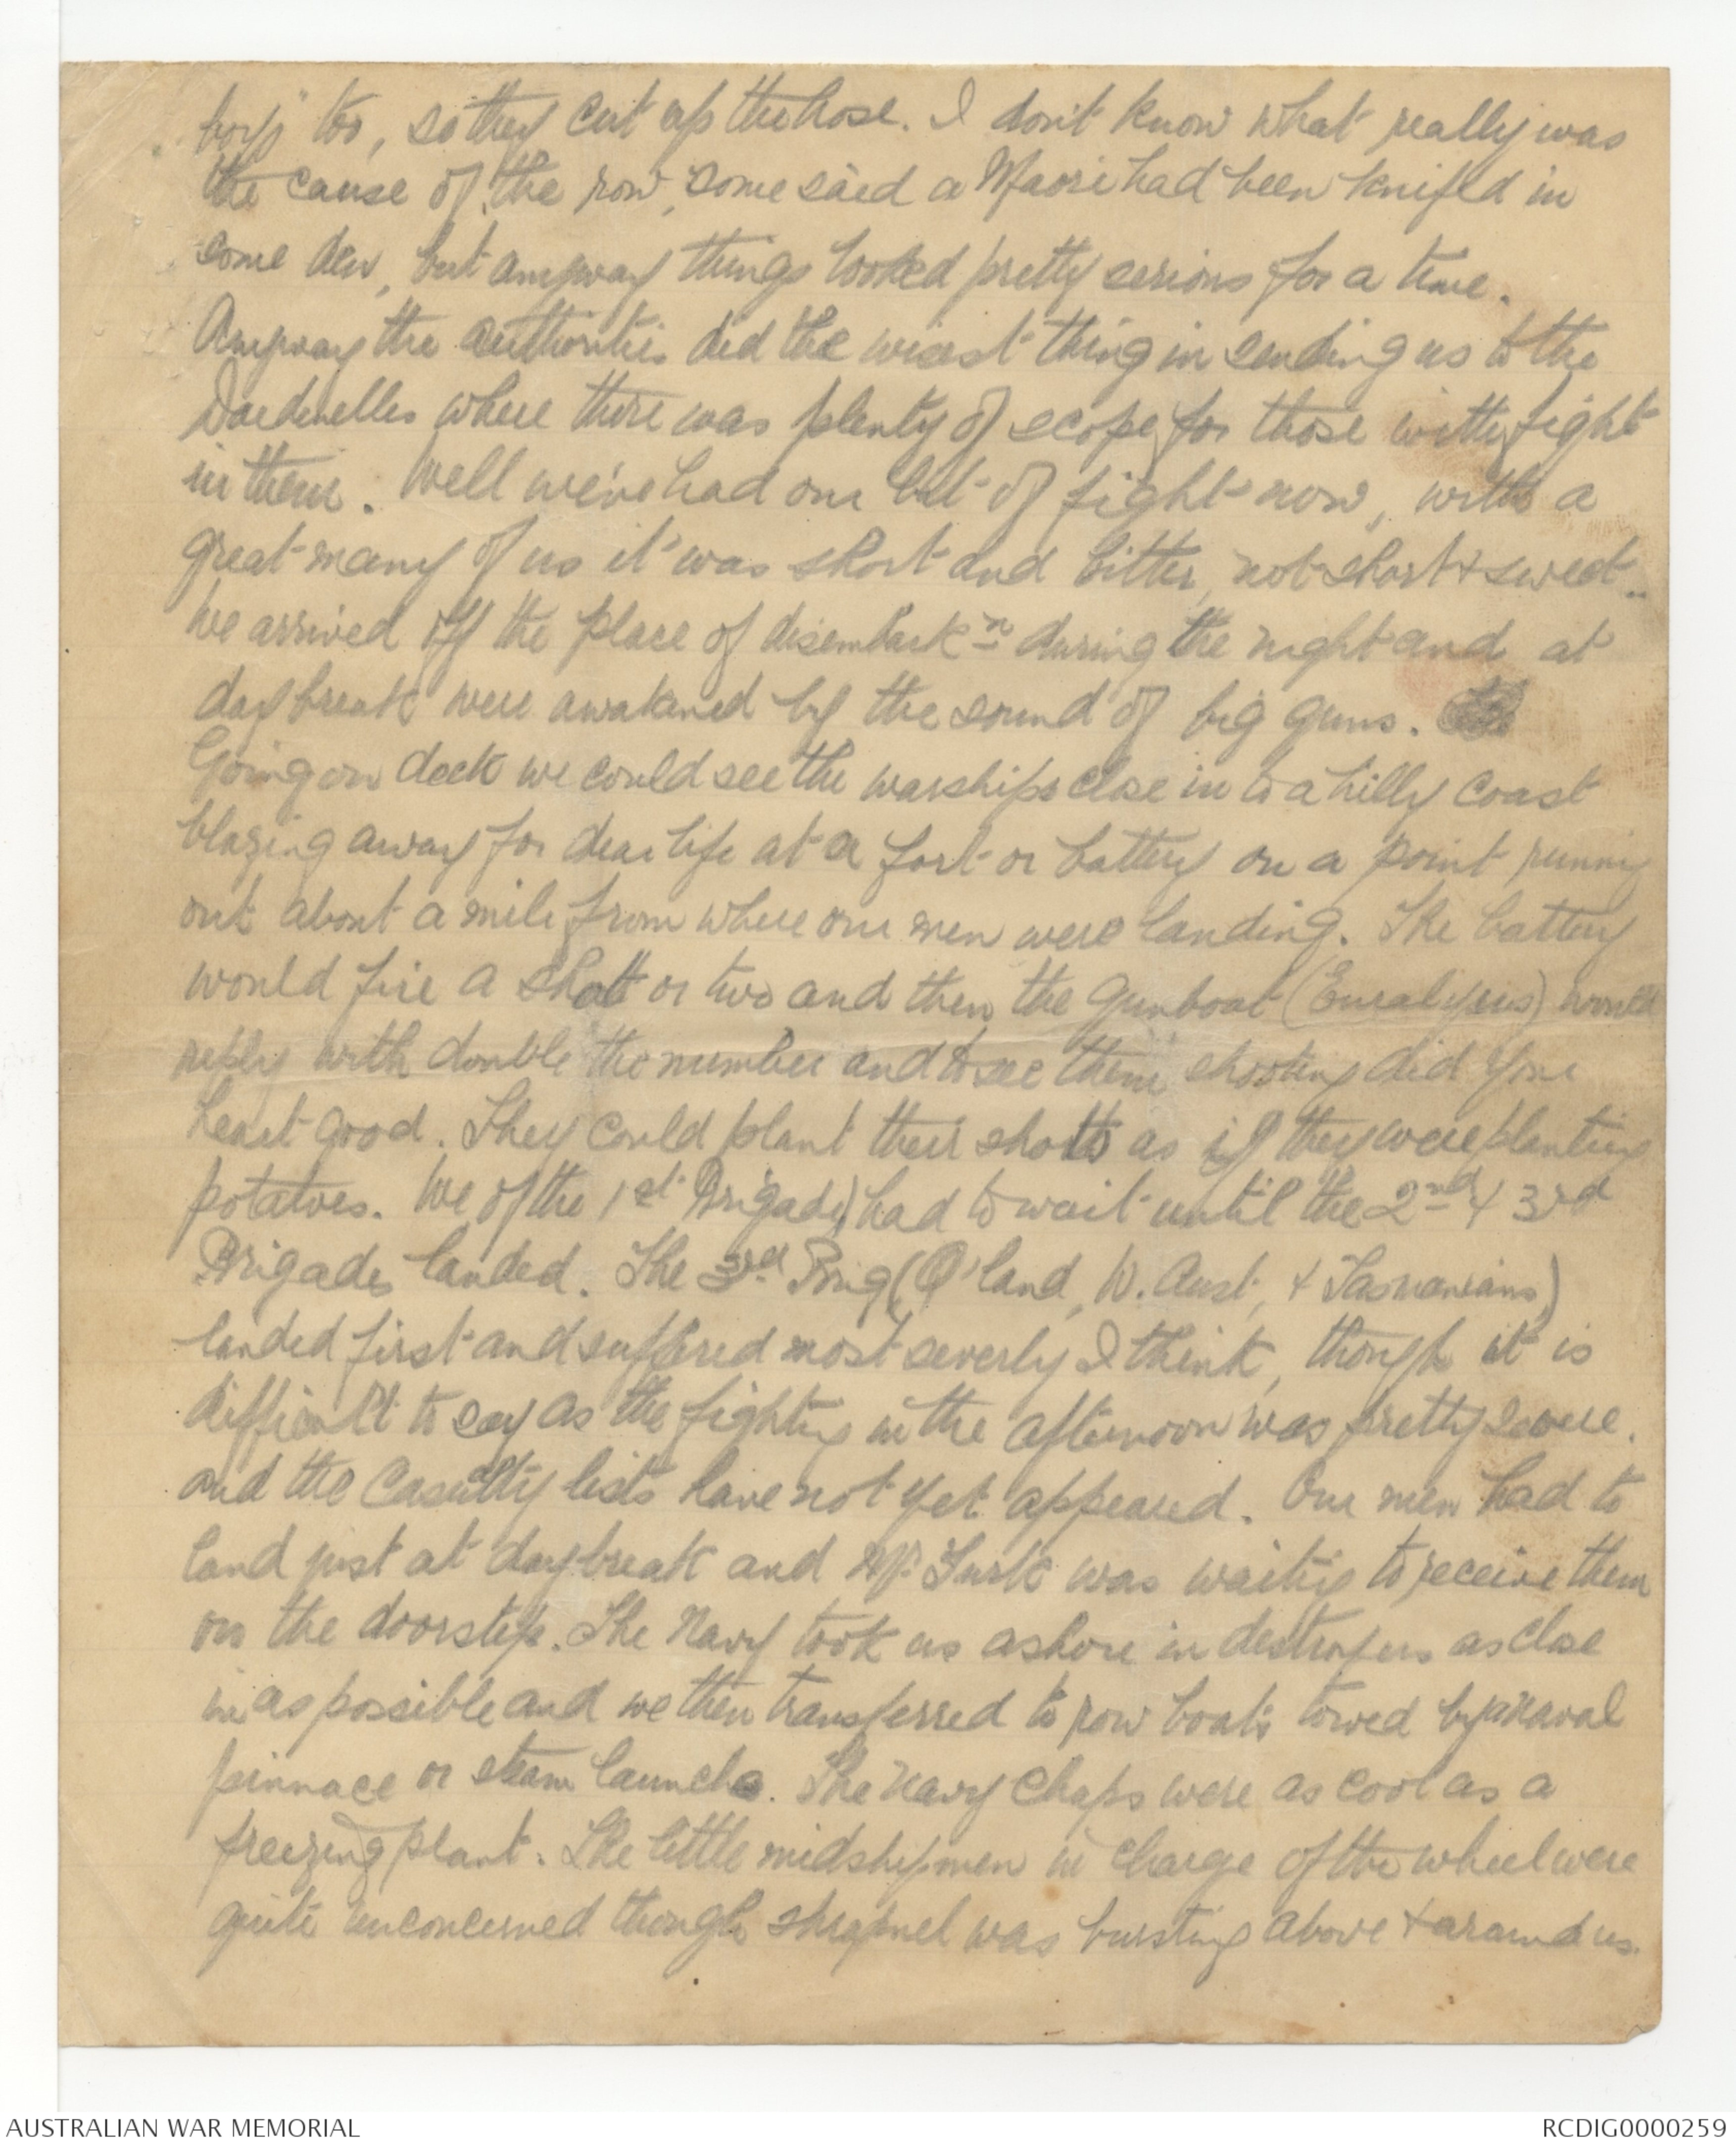 boys" too, so they cut up the hose. I don't know what really was
the cause of the row, some said a Maori had been knifed in
some den, but anyway things looked pretty serious for a time.
Anyway the authorities did the wisest thing in sending us to the
Dardenelles where there was plenty of scope for those with fight
in them. Well we've had our bit of fight now, with a
great many of us it was short and bitter, not short & sweet..
We arrived off the place of disembarkn during the night and at
daybreak were awakened by the sound of big guns.
Going on deck we could see the warships close in to a hilly coast
blazing away for dear life at a fort or battery on a point running
out about a mile from where our men were landing. The battery
would fire a shot or two and then the gunboat (Euralypus) would
reply with double the number and to see them shooting did your
heart good. They could plant their shots as if they were planting
potatoes. We of the 1st Brigade) had to wait until the 2nd & 3rd
Brigades landed. The 3rd Brig (Q'land, W. Aust, & Tasmanians)
landed first and suffered most severly I think, though it is
difficult to say as the fighting in the afternoon was pretty severe.
and the Casualty lists have not yet appeared. Our men had to
land just at daybreak and Mr. Turk was waiting to receive them
on the doorstep. The Navy took us ashore in destroyers as close
in as possible and we then transferred to row boats towed by a naval
pinnace or steam launch. The Navy chaps were as cool as a
freezing plant. The little midshipmen in charge of the wheel were
quite unconcerned though shrapnel was bursting above & around us.
AUSTRALIAN WAR MEMORIAL
RCDIG0000259